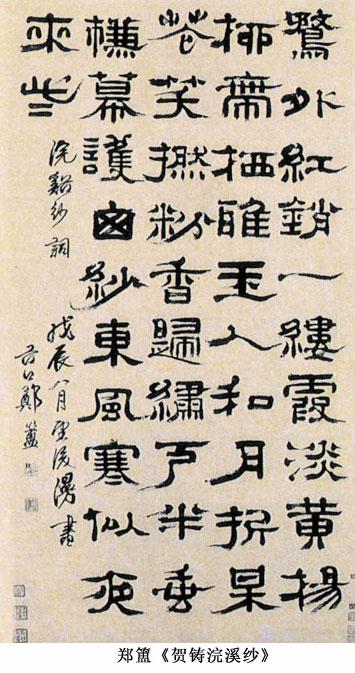 鶩外紅銷一縷霞淡黃揚
柳帶栖雅玉人和月折呆
花笑撚粉香歸繡戶半垂
幕護囪紗東風寒似夜
來些
浣谿紗詞
戊辰八月望後漫書
谷口鄭簠
郑簠《贺铸浣溪纱》